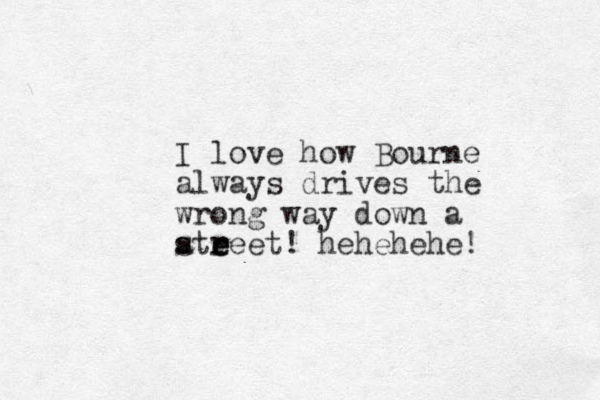 I love how Bourne
always drives the
wrong way down a
street! hehehehe!